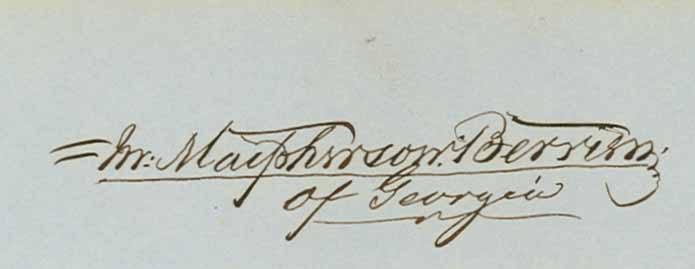 = Jn: Macpherson: Berrien.
of Georgia